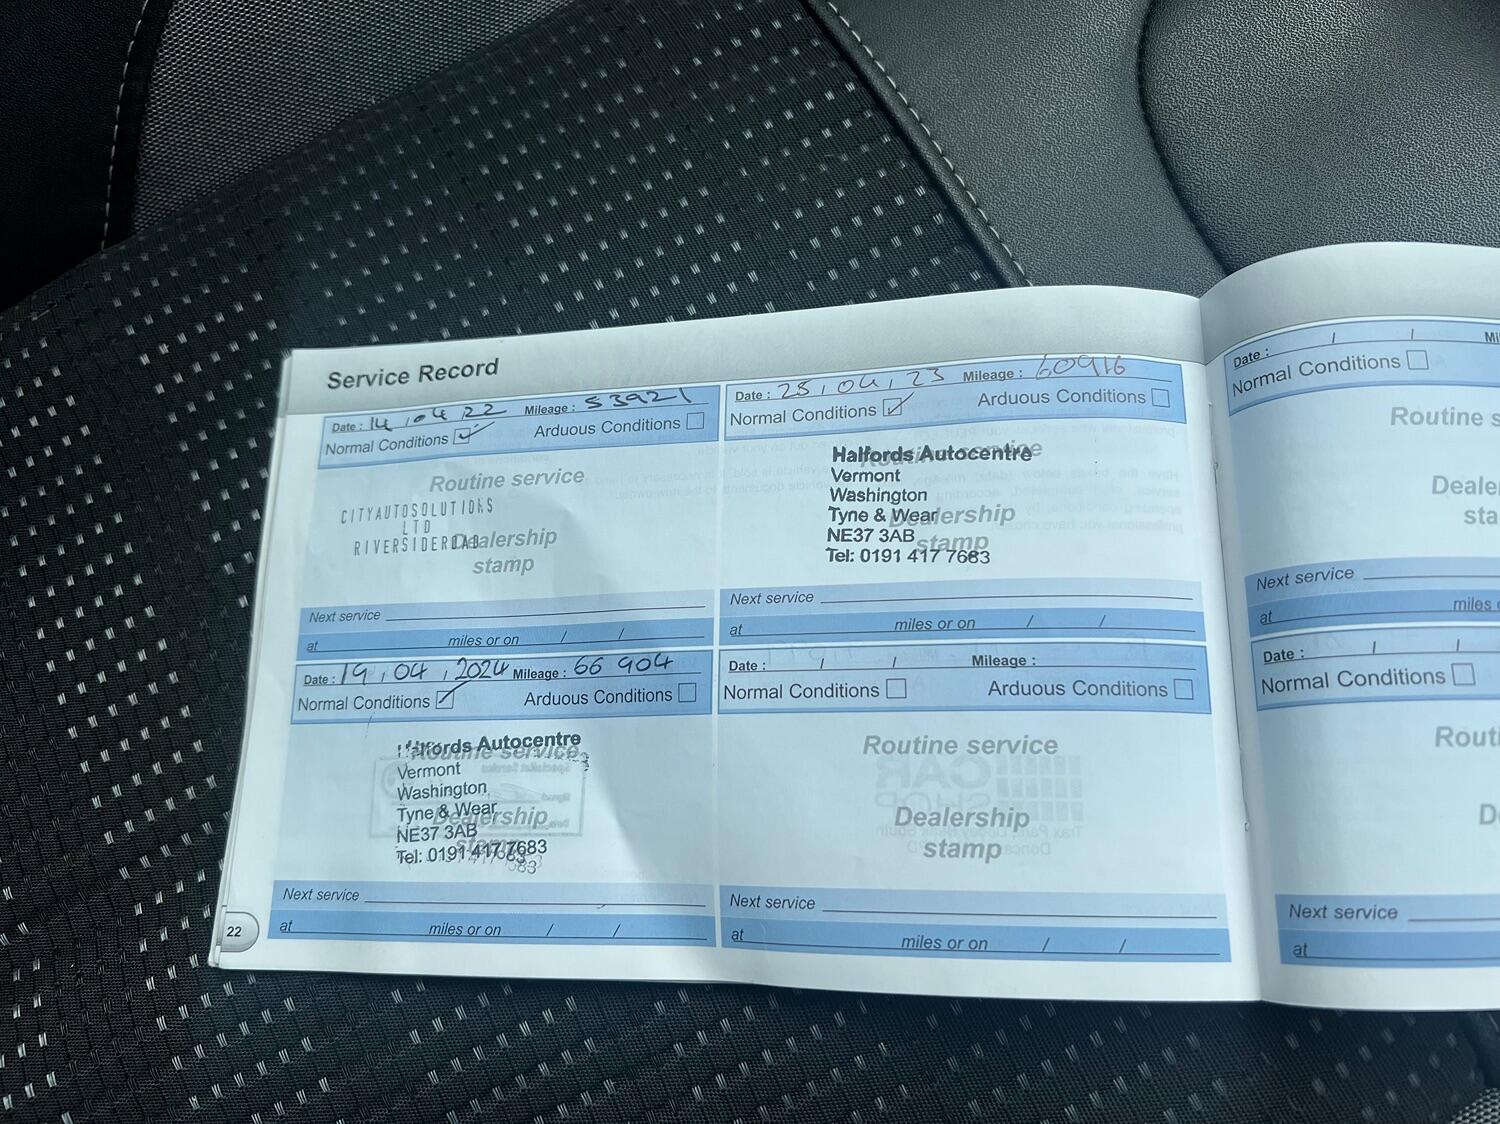 Service Record
Date : 14 , 04 , 22 Mileage : 53921
Normal Conditions Arduous Conditions
Routine service
CITYAUTOSOLUTIONS
LTD
RIVERSIDEROAD
Dealership
stamp
Next service
at miles or on / /
Date : 25 , 04 , 23 Mileage : 60916
Normal Conditions Arduous Conditions
Halfords Autocentre
Routine service
Vermont
Washington
Tyne & Wear
Dealership
NE37 3AB
stamp
Tel: 0191 417 7683
Next service
at miles or on / /
Date : 19 , 04 , 2024 Mileage : 66 904
Normal Conditions Arduous Conditions
Halfords Autocentre
Routine service
Vermont
Washington
Tyne & Wear
Dealership
NE37 3AB
stamp
Tel: 0191 417 7683
Next service
at miles or on / /
Date : / / Mileage :
Normal Conditions Arduous Conditions
Routine service
Dealership
stamp
Next service
at miles or on / /
22
Date : / / Mi
Normal Conditions
Routine s
Dealer
sta
Next service
at miles o
Date : / /
Normal Conditions
Routi
D
Next service
at